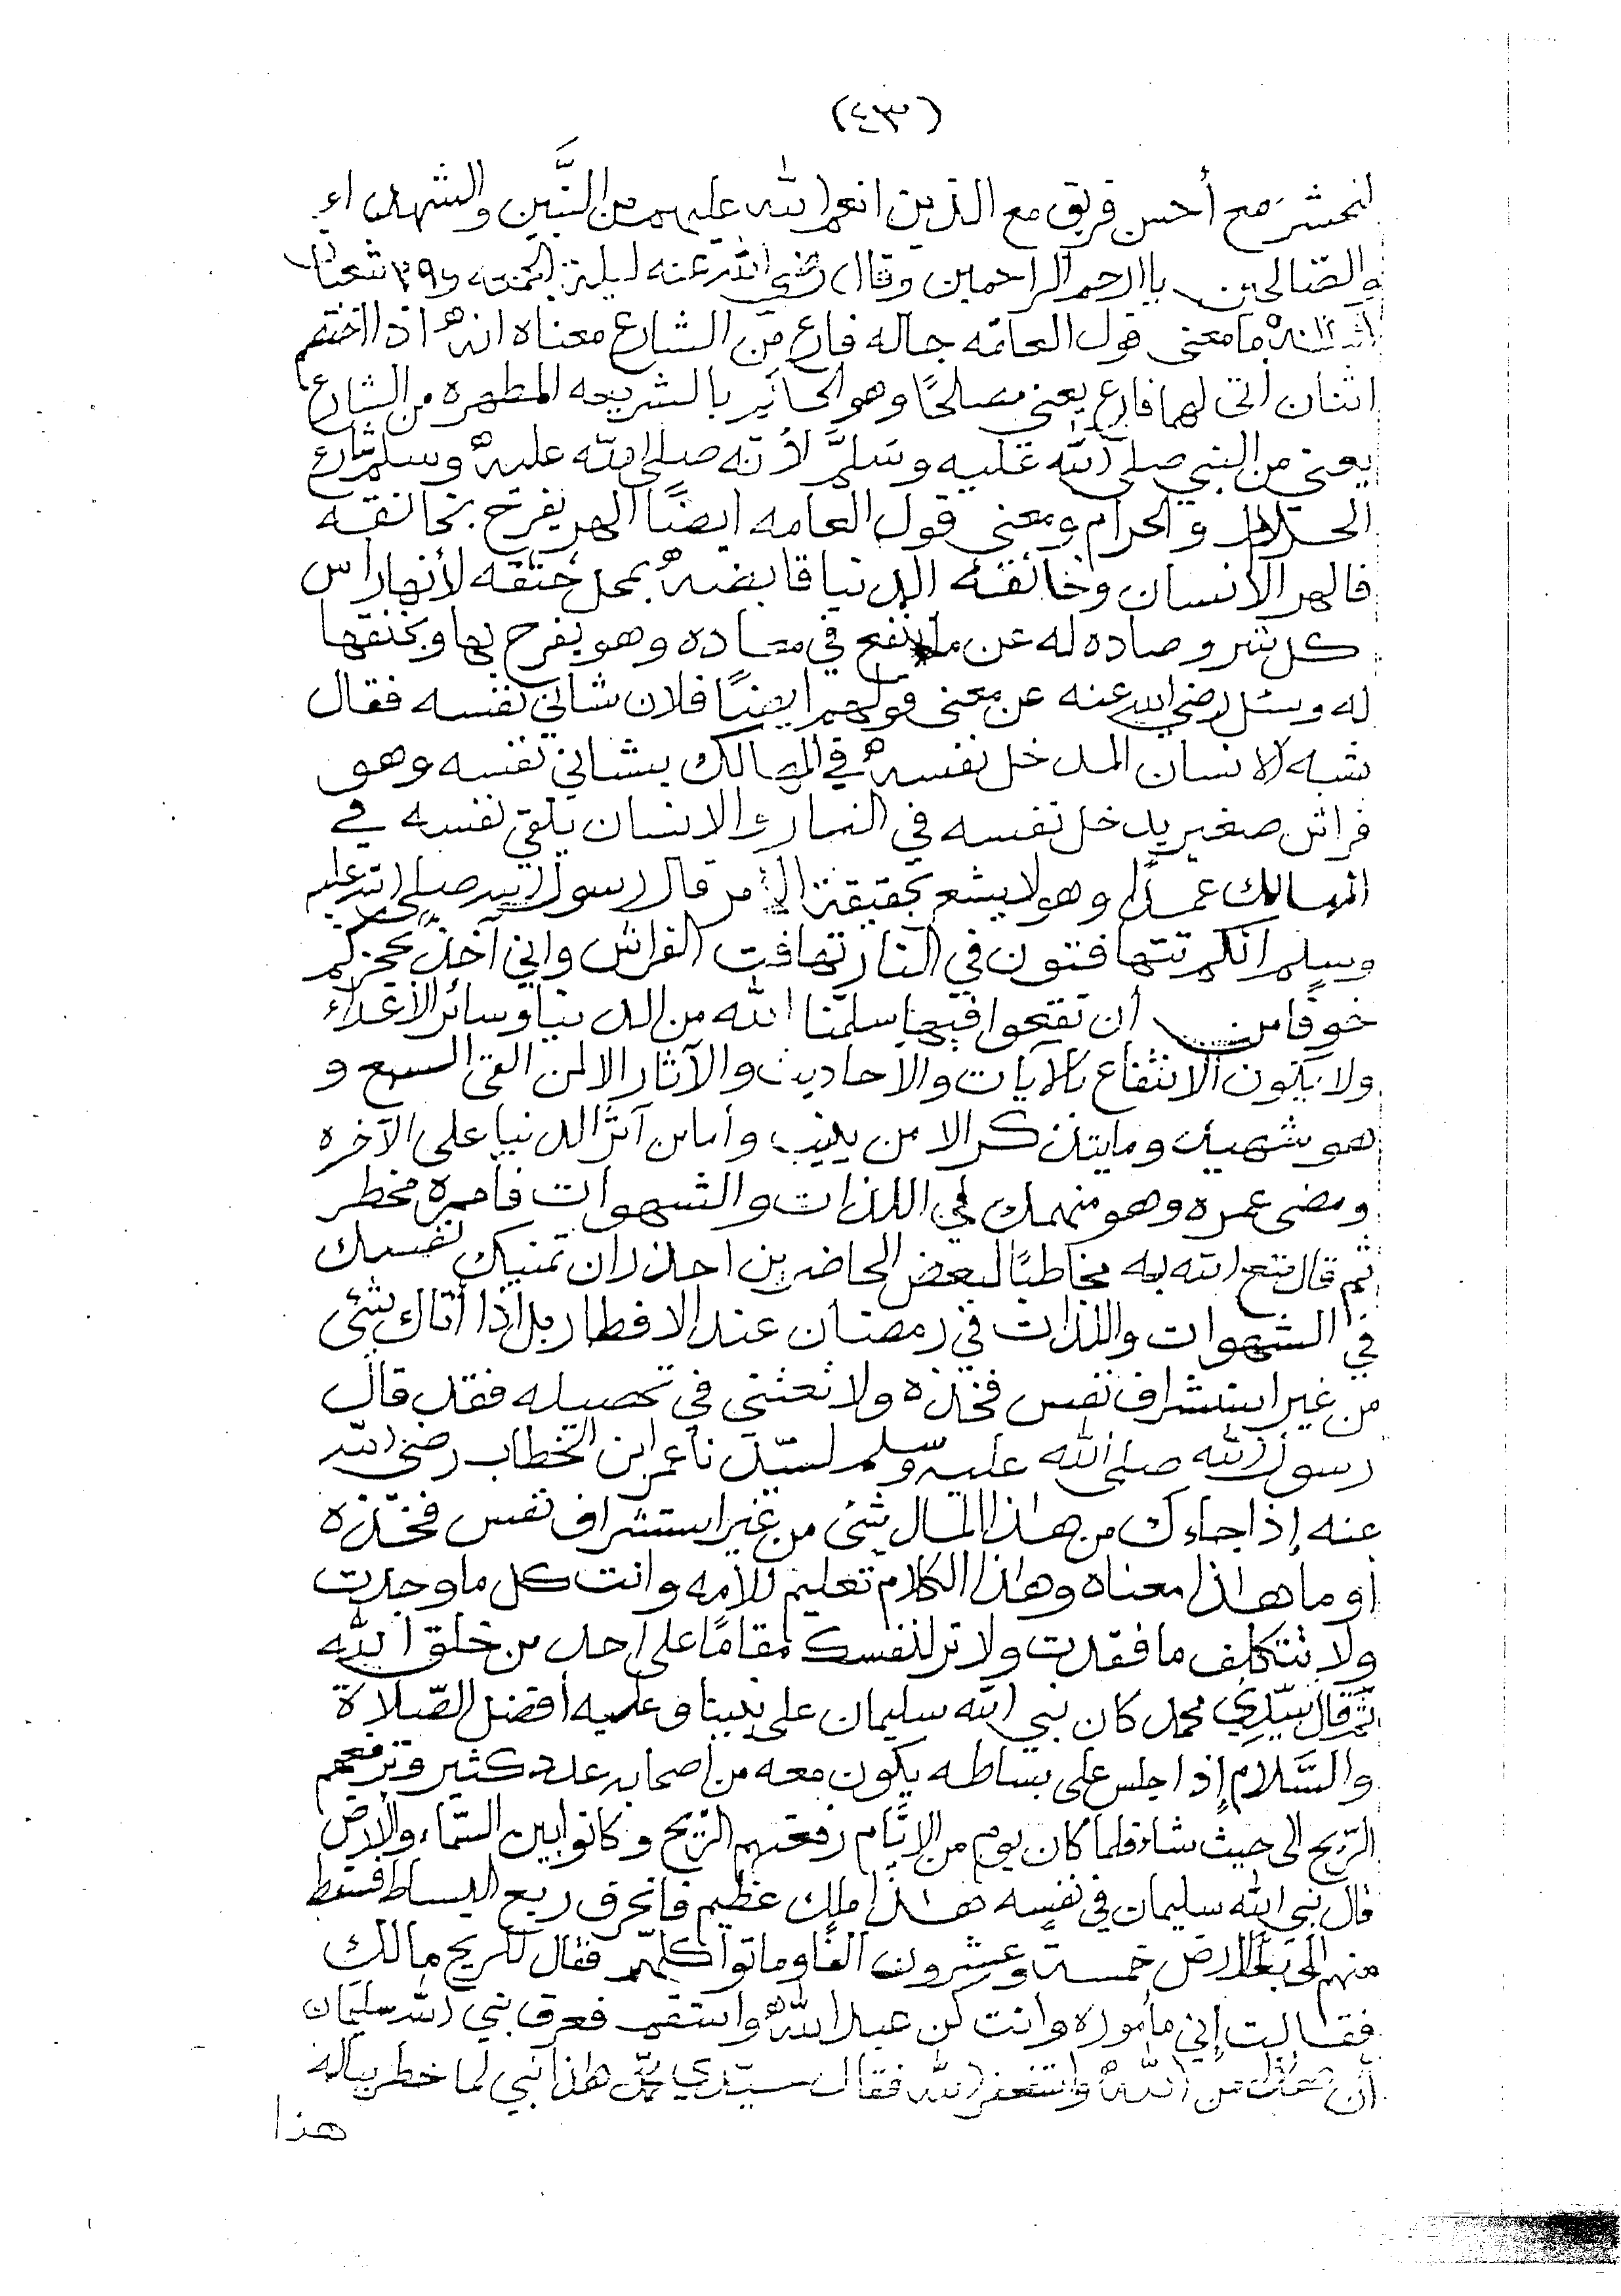 (٤٣)
لنحشر مع أحسن فريق مع الذين انعم الله عليهم من النبَّين والشهداء
والصّالحين يا ارحم الراحمين وقال رضي الله عنه ليلة الجمعه و٢٩ شعبان
ما معنى قول العامّه جاله فارع من الشارع معناه انه اذا اختصم
اثنان أتى لهما فارع يعني مصلحًا وهو الحائر بالشريعه المطهره من الشارع
يعني من النبي صلى الله عليه وسلَّم لأنّه صلى الله عليه وسلم شارع
الحلال والحرام ومعنى قول العامه ايضًا الهر يفرح بخانقه
فالهر الانسان وخانقه الدنيا قابضه بمحل خنقه لأنها راس
كل شر وصاده له عن ما ينفع في معاده وهو يفرح بها وبخنقها
له وسئل رضي الله عنه عن معنى قولهم ايضًا فلان شاني نفسه فقال
شبه الانسان المدخل نفسه في المهالك بشاني نفسه وهو
فراش صغير يدخل نفسه في النار والانسان يلقي نفسه في
المهالك عمدًا وهو لا يشعر بحقيقة الأمر قال رسول الله صلى الله عليه
وسلم انكم تتهافتون في النار تهافت الفراش واني آخذ بحجزكم
خوفًا من أن تقتحوا فيها سلّمنا الله من الدنيا وسائر الأعداء
ولا يكون الانتفاع بالآيات والاحاديث والآثار الا لمن القى السمع و
هو شهيد وما يتذكر الا من ينيب وأما من آثر الدنيا على الآخره
ومضى عمره وهو منهمك في اللذات والشهوات فأمره مخطر
ثم قال متع الله به مخاطبًا لبعض الحاضرين احذر ان تمنيك نفسك
في الشهوات واللذات في رمضان عند الافطار بل اذا أتاك شئ
من غير استشراف نفس فخذه ولا تعتني في تحصيله فقد قال
رسول الله صلى الله عليه وسلم لسيّدنا عمر ابن الخطاب رضي الله
عنه إذا جاءك من هذا المال شئ من غير استشراف نفس فخذه
او ما هذا معناه وهذا الكلام تعليم للأمه وانت كل ما وجدت
ولا تتكلف ما فقدت ولا تر لنفسك مقامًا على احد من خلق الله
ثمّ قال سيّدي محمد كان نبي الله سليمان على نبينا وعليه أفضل الصّلاة
والسَّلام إذا جلس على بساطه يكون معه من أصحابه عدد كثير وترفعهم
الرّيح الى حيث شاء فلما كان يوم من الايَّام رفعتهم الرّيح وكانوا بين السّماء والأرض
قال نبي الله سليمان في نفسه هذا ملك عظيم فانخرق ربع البساط فسقط
منهم الى الارض خمسة وعشرون الفًا وماتوا كلّهم فقال للريح مالك
فقالت إني مأموره وانت كن عبد الله واستقم فعرف نبي الله سليمان
أن من الله واستغفر الله فقال سيّدي محمّد هذا نبي لما خطر بباله
هذا